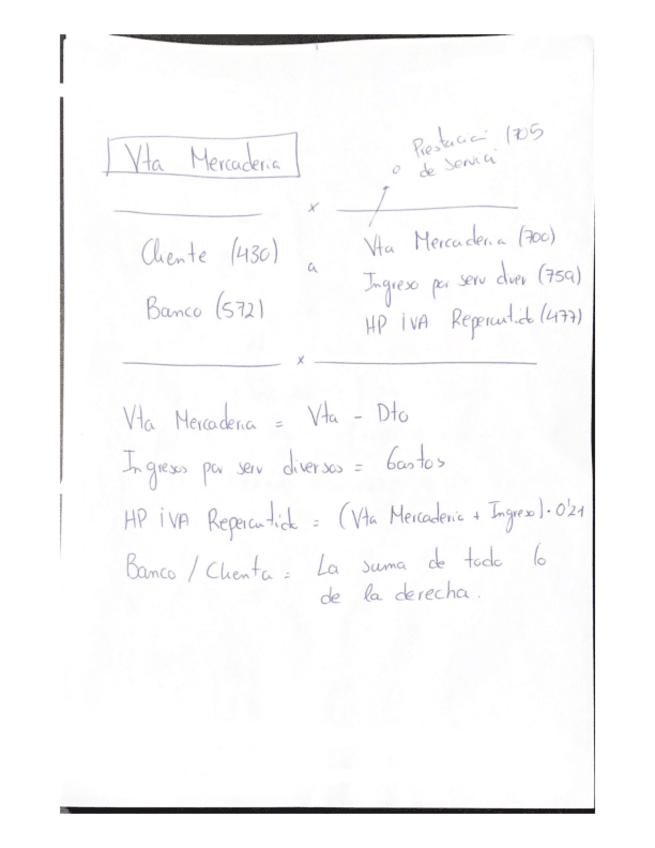 Vta Mercaderia
o Prestación (705
de servici
x
Cliente (430)
a
Vta Mercaderia (700)
Banco (572)
Ingreso por serv diver (759)
HP iVA Repercutido (477)
x
Vta Mercaderia = Vta - Dto
Ingresos por serv diversos = Gastos
HP iVA Repercutido = (Vta Mercaderia + Ingreso) · 0'21
Banco / Clienta = La suma de todo lo
de la derecha.